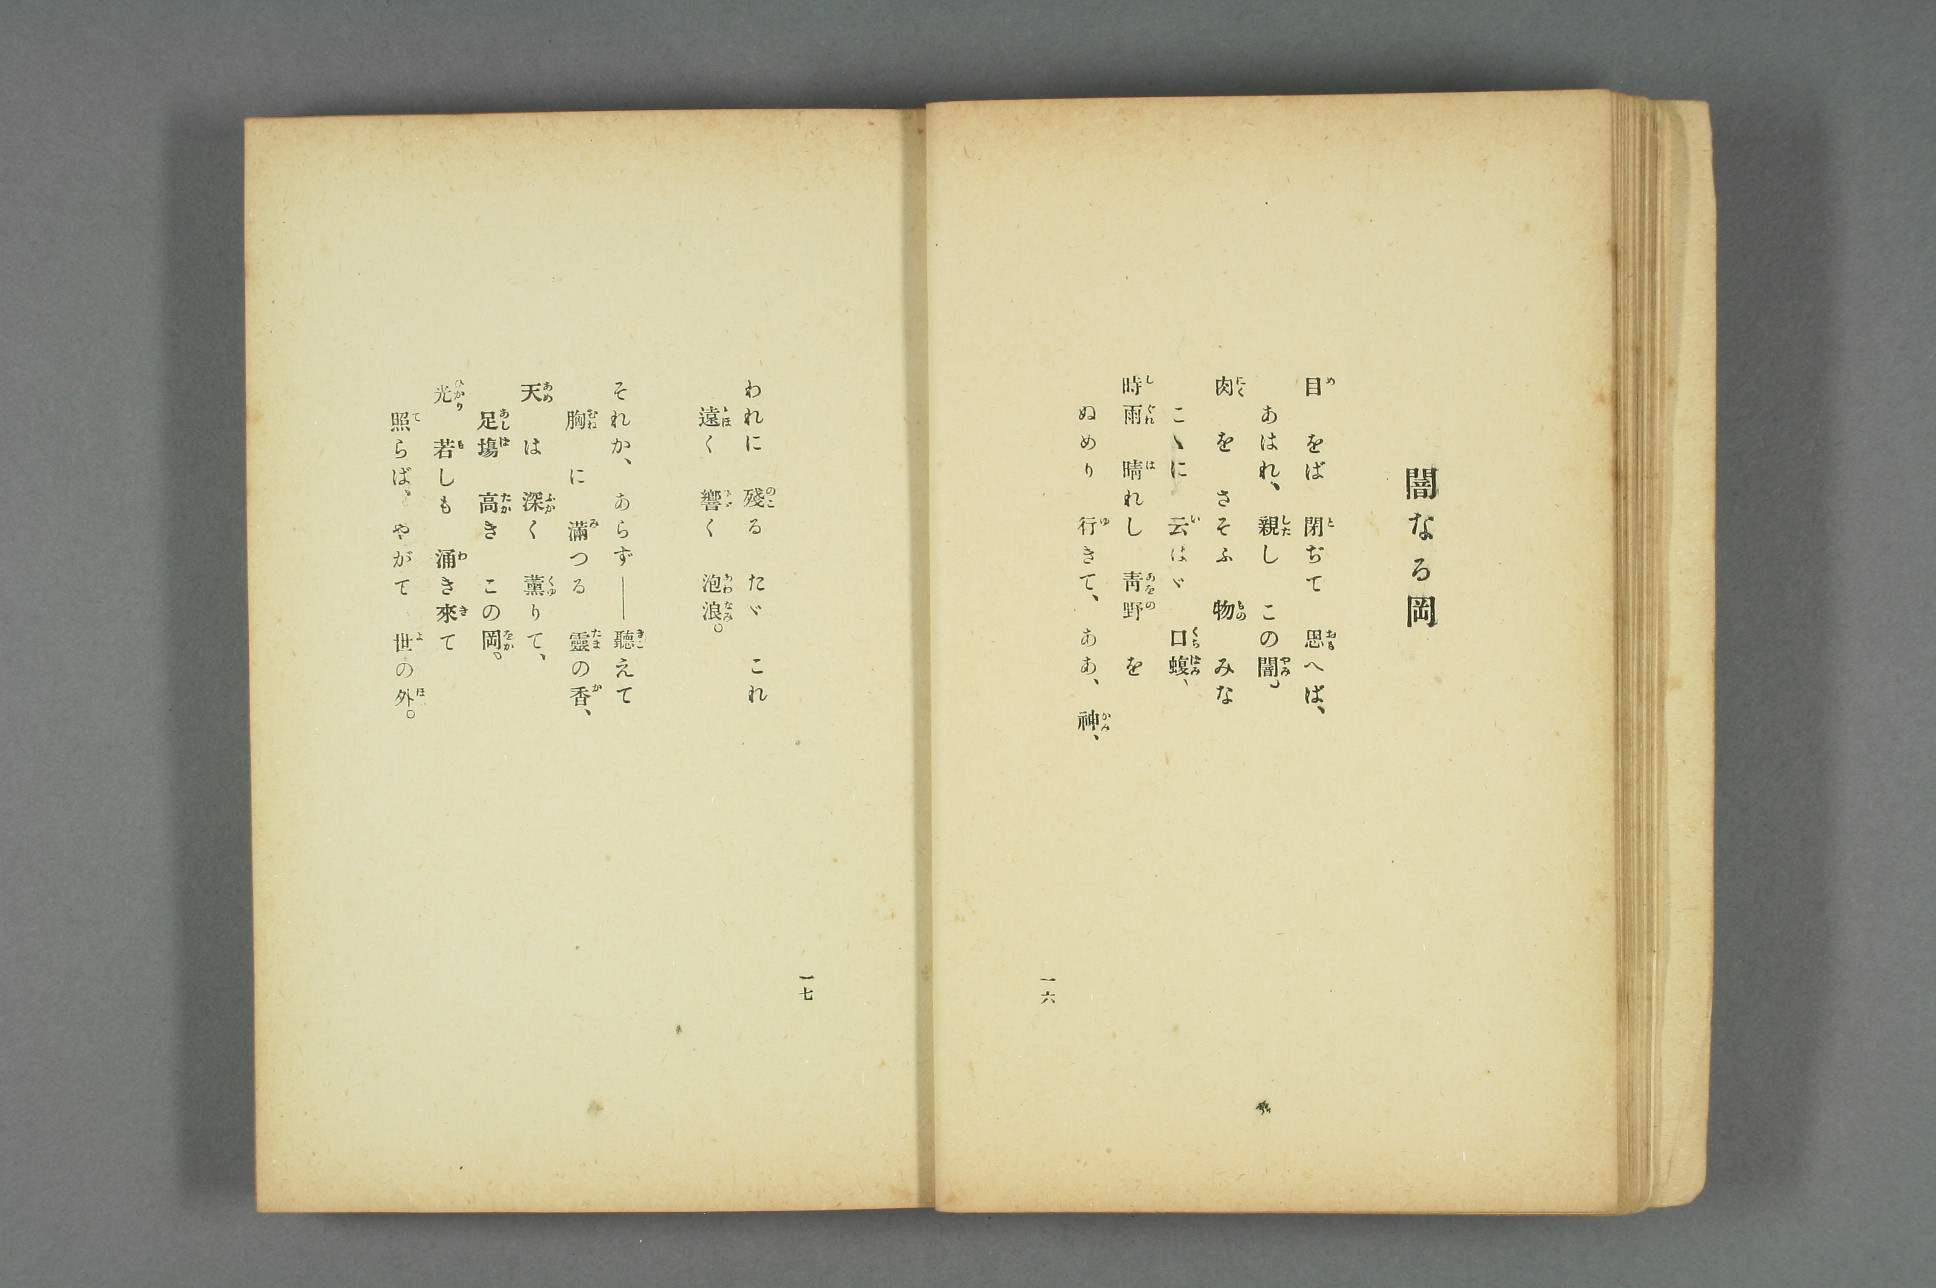 闇なる岡
目をば 閉ぢて 思へば、
あはれ、親し この闇。
肉を さそふ 物 みな
こゝに 云はゞ 口蝮、
時雨 晴れし 靑野を
ぬめり 行きて、ああ、神、
一六
われに 殘る たゞ これ
遠く 響く 泡浪。
それか、あらず――聽えて
胸に 滿つる 靈の香、
天は 深く 薰りて、
足塲 高き この岡。
光 若しも 涌き來て
照らば、やがて 世の外。
一七